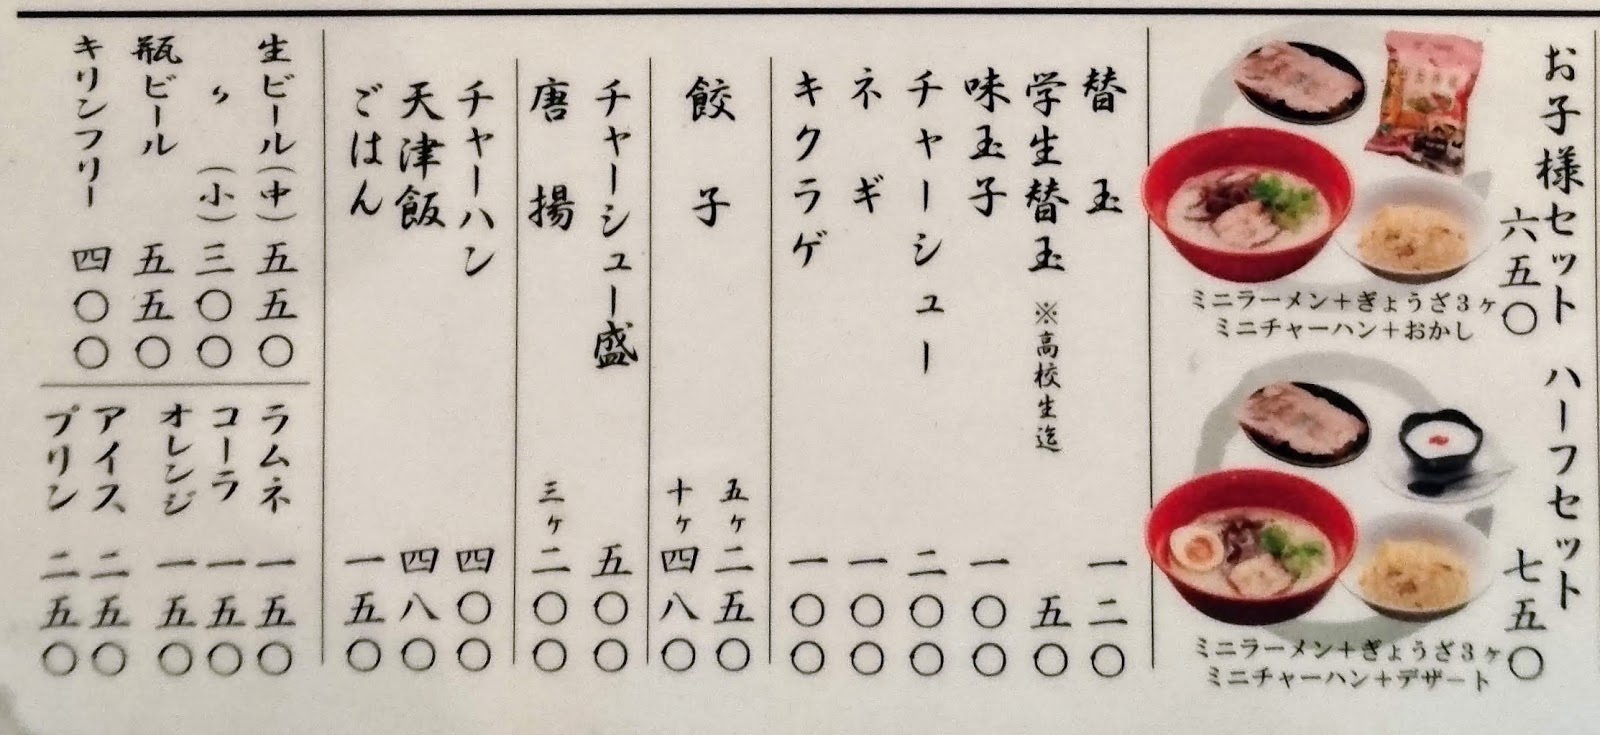 お子様セット 六五〇
ミニラーメン＋ぎょうざ３ヶ
ミニチャーハン＋おかし
ハーフセット 七五〇
ミニラーメン＋ぎょうざ３ヶ
ミニチャーハン＋デザート
替玉 一二〇
学生替玉 ※高校生迄 五〇
味玉子 一〇〇
チャーシュー 二〇〇
ネギ 一〇〇
キクラゲ 一〇〇
餃子 五ヶ 二五〇
十ヶ 四八〇
チャーシュー盛 五〇〇
唐揚 三ヶ 二〇〇
チャーハン 四〇〇
天津飯 四八〇
ごはん 一五〇
生ビール（中） 五五〇
〃（小） 三〇〇
瓶ビール 五五〇
キリンフリー 四〇〇
ラムネ 一五〇
コーラ 一五〇
オレンジ 一五〇
アイス 二五〇
プリン 二五〇